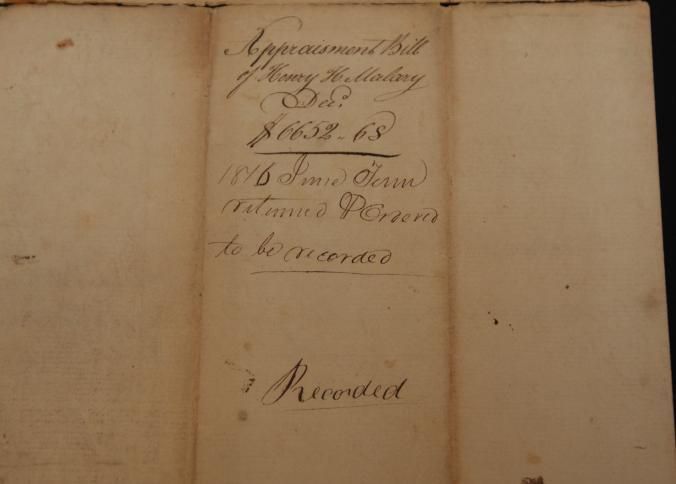 Appraisment Bill
of Henry H. Malary
Decd
$6652-68
1846 June Term
returned & Ordered
to be recorded
Recorded